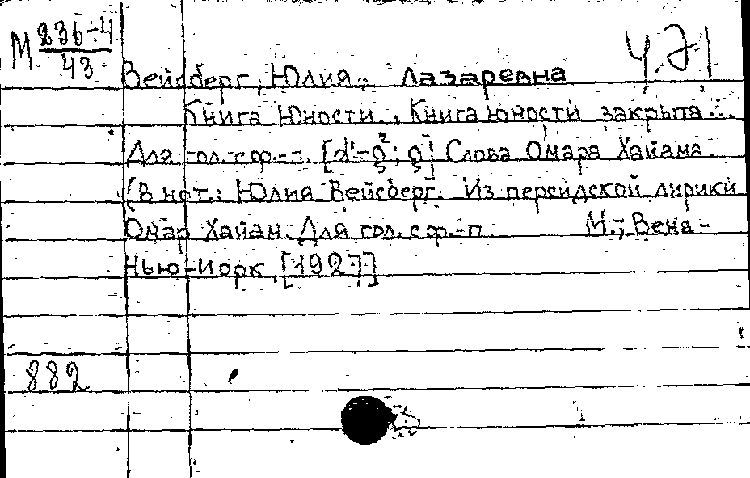 М 236-4 Ч.З1
43
Вейсберг, Юлия Лазаревна
Книга Юности. "Книга юности закрыта...
Для гол. с ф.-п. [d¹-g²; g] Слова Омара Хайама
(В нот.: Юлия Вейсберг. Из персидской лирики
Омар Хайам. Для гол. с ф.-п. М.; Вена-
Нью-Иорк, [1927]
882